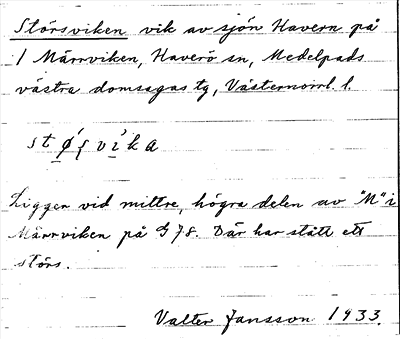 Störsviken vik av sjön Havern på
1 Märrviken, Haverö sn, Medelpads
västra domsagas tg, Västernorrl. l.
stø´ʃvi`ka
Ligger vid mittre, högra delen av "M" i
Märrviken på G 78. Där har stått ett
störs.
Valter Jansson 1933.